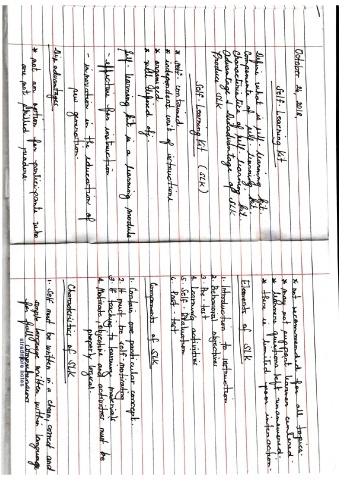 October 24, 2018.
Self-Learning Kit
Define what is self-learning kit
Components of self learning kit
Characteristics of self-learning kit
Advantages & Disadvantage of SLK
Produce SLK
Self-Learning Kit (SLK)
* self contained
* independent unit of instructions
* organized
* well defined of
Self-learning kit is a learning module
- effective for instruction
- innovation in the education of
new generation.
Disadvantages
* not an option for participants who
are not skilled readers.
* not recommended for all topics.
* may not support learner centered.
* learner questions left unanswered.
* there is limited peer interaction.
Elements of SLK
1. Introduction to instruction
2. Behavioral objectives
3. Pre-test
4. Learning activities
5. Self-Evaluation
6. Post-test
Components of SLK
1. Contain one particular concept.
2. It must be self-motivating
3. If teaching & learning materials
4. Material, objective and activities must be
properly logical.
Characteristics of SLK
1. Self must be written in a clear, correct and
simple language written within language
for full